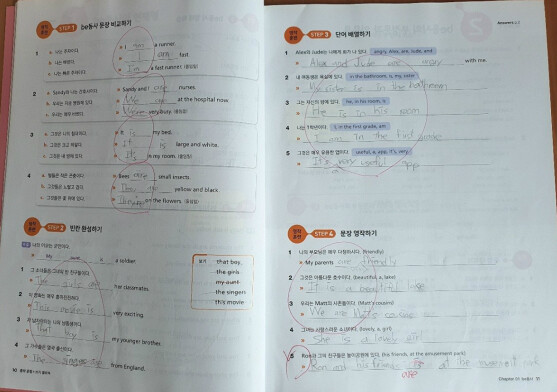 STEP 1 be동사 문장 비교하기
1 a. 나는 주자이다. I am a runner.
b. 나는 빠르다. I am fast.
c. 나는 빠른 주자이다. I'm a fast runner. (줄임말)
2 a. Sandy와 나는 간호사이다. Sandy and I are nurses.
b. 우리는 지금 병원에 있다. We are at the hospital now.
c. 우리는 매우 바쁘다. We're very busy. (줄임말)
3 a. 그것은 나의 침대이다. It is my bed.
b. 그것은 크고 하얗다. It is large and white.
c. 그것은 내 방에 있다. It's in my room. (줄임말)
4 a. 벌들은 작은 곤충이다. Bees are small insects.
b. 그것들은 노랗고 검다. They are yellow and black.
c. 그것들은 꽃 위에 있다. They're on the flowers. (줄임말)
STEP 2 빈칸 완성하기
나의 이모는 군인이다.
My is a soldier.
보기 that boy
the girls
my aunt
the singers
this movie
1 그 소녀들은 그녀의 반 친구들이다.
The girls are her classmates.
2 이 영화는 매우 흥미진진하다.
This movie is very exciting.
3 저 남자아이는 나의 남동생이다.
That boy is my younger brother.
4 그 가수들은 영국 출신이다.
The from England.
10
Answers
STEP 3 단어 배열하기
1 Alex와 Jude는 나에게 화가 나 있다. angry, Alex, are, Jude, and
Alex and Jude are angry with me.
2 내 여동생은 욕실에 있다. in the bathroom, is, my, sister
My sister is in the bathroom
3 그는 자신의 방에 있다. he, in his room, is
He is in his room
4 나는 1학년이다. I, in the first grade, am
I am in the first
5 그것은 매우 유용한 앱이다. useful, a, app, it's, very
It's very useful app
STEP 4 문장 영작하기
1 나의 부모님은 매우 다정하시다. (friendly)
My parents are friendly
2 그것은 아름다운 호수이다. (beautiful, a, lake)
It is a beautiful lake
3 우리는 Matt의 사촌들이다. (Matt's cousins)
We are Matt's
4 그녀는 사랑스러운 소녀이다. (lovely, a, girl)
She is a lovely girl
5 Ron과 그의 친구들은 놀이공원에 있다. (his friends, at the amusement park)
Ron and his friends at the park
are
Chapter 01 be동사 11